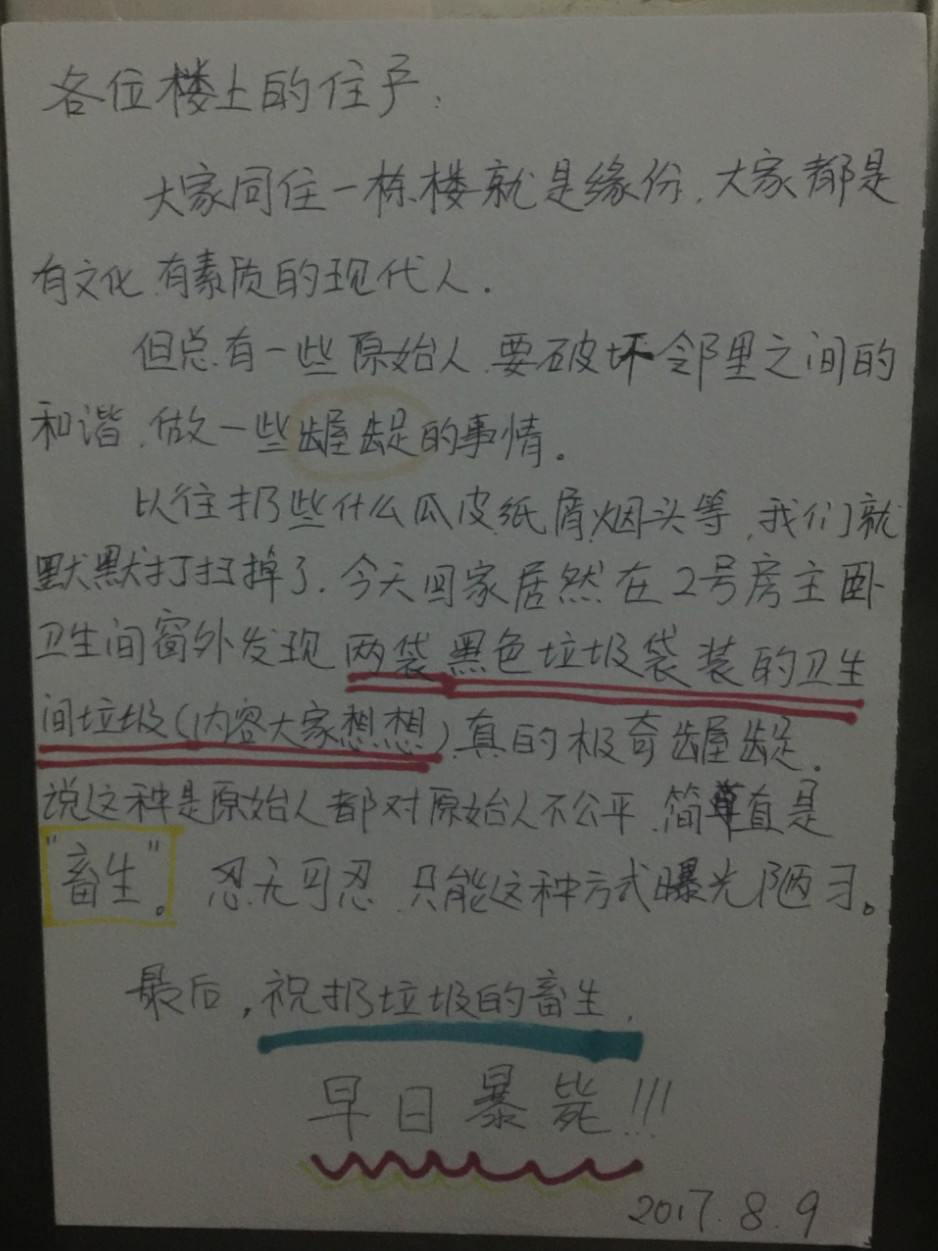 各位楼上的住户:
大家同住一栋楼就是缘份,大家都是
有文化,有素质的现代人.
但总有一些原始人,要破坏邻里之间的
和谐,做一些龌龊的事情。
以往扔些什么瓜皮,纸屑,烟头等,我们就
默默打扫掉了.今天回家居然在2号房主卧
卫生间窗外发现两袋黑色垃圾袋装的卫生
间垃圾(内容大家想想),真的极奇龌龊.
说这种是原始人都对原始人不公平,简直是
"畜生"。忍无可忍,只能这种方式曝光陋习。
最后,祝扔垃圾的畜生,
早日暴毙!!!
2017.8.9